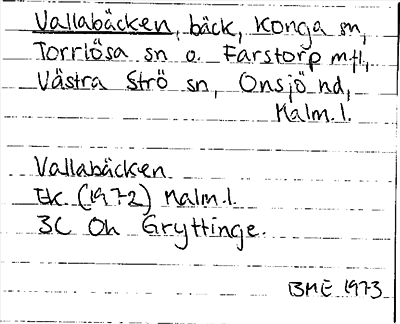 Vallabäcken, bäck, Konga sn,
Torrlösa sn o. Farstorp m.fl.,
Västra Strö sn, Onsjö hd,
Malm.l.
Vallabäcken
Ek (1972) Malm.l.
3C Oh Gryttinge.
BME 1973